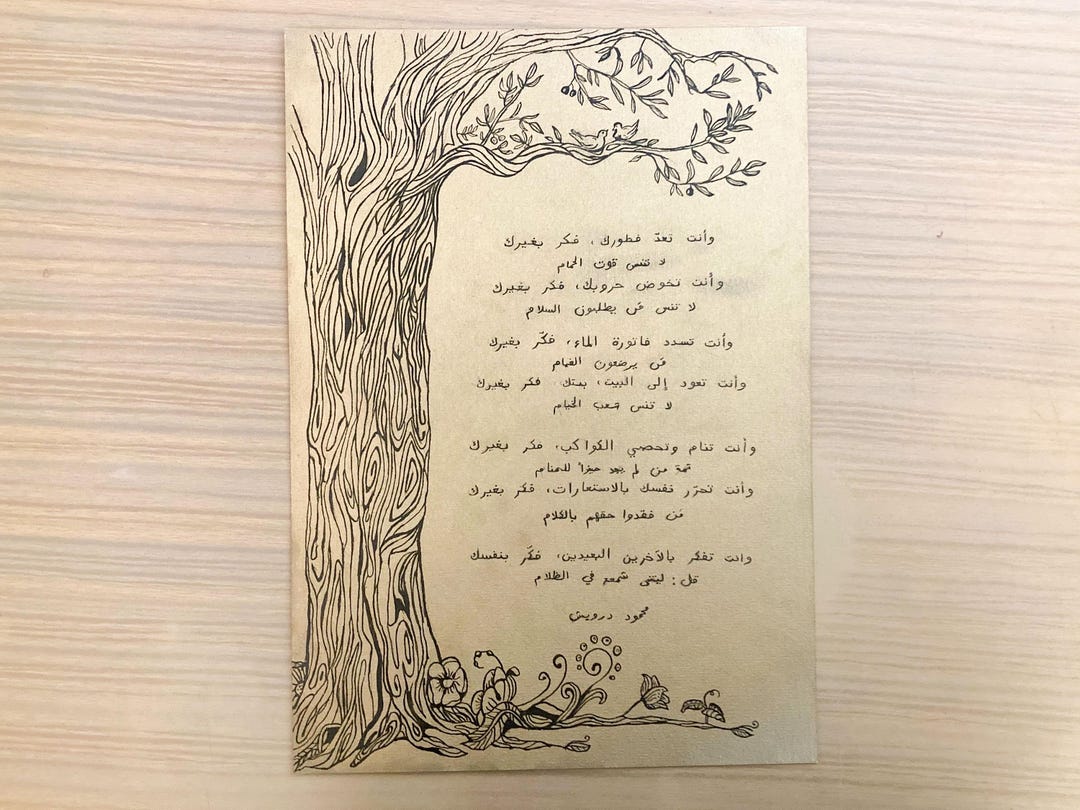 وأنت تعدّ فطورك، فكر بغيرك
لا تنس قوت الحمام
وأنت تخوض حروبك، فكر بغيرك
لا تنس مَن يطلبون السلام
وأنت تسدد فاتورة الماء، فكّر بغيرك
مَن يرضعون الغمام
وأنت تعود إلى البيت، بيتك، فكر بغيرك
لا تنس شعب الخيام
وأنت تنام وتحصي الكواكب، فكر بغيرك
ثمة من لم يجد حيزاً للمنام
وأنت تحرّر نفسك بالاستعارات، فكر بغيرك
مَن فقدوا حقهم بالكلام
وانت تفكر بالآخرين البعيدين، فكّر بنفسك
قل: ليتني شمعة في الظلام
محمود درويش